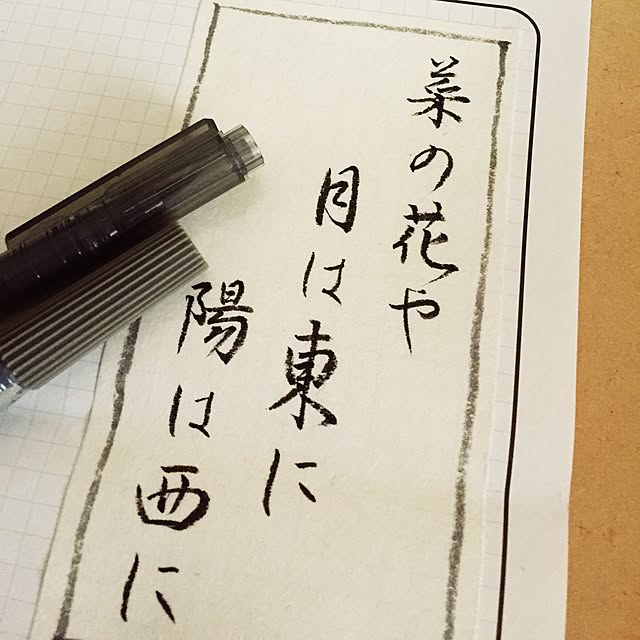 菜の花や
月は東に
陽は西に